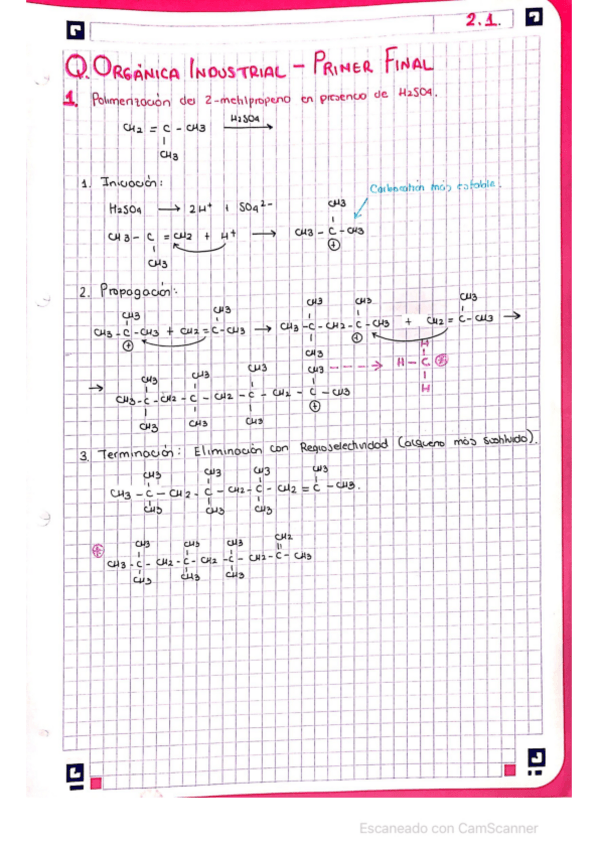 2.1.
Q. ORGÁNICA INDUSTRIAL - PRIMER FINAL
1. Polimerización del 2-metilpropeno en presencia de H2SO4.
H2SO4
CH2 = C - CH3
CH3
1. Iniciación:
Carbocatión más estable.
H2SO4 → 2H+ + SO4 2-
CH3
CH3 - C = CH2 + H+ → CH3 - C - CH3
CH3 +
2. Propagación:
CH3 CH3 CH3 CH3 CH3
CH3 - C - CH3 + CH2 = C - CH3 → CH3 - C - CH2 - C - CH3 + CH2 = C - CH3 →
+ CH3 +
H
CH3 CH3 CH3 CH3 ----> H - C *
→ CH3 - C - CH2 - C - CH2 - C - CH2 - C - CH3 H
CH3 CH3 CH3 +
3. Terminación: Eliminación con Regioselectividad (alqueno más sustituido).
CH3 CH3 CH3 CH3
CH3 - C - CH2 - C - CH2 - C - CH2 = C - CH3.
CH3 CH3 CH3
* CH3 CH3 CH3 CH2
CH3 - C - CH2 - C - CH2 - C - CH2 - C - CH3
CH3 CH3 CH3
Escaneado con CamScanner